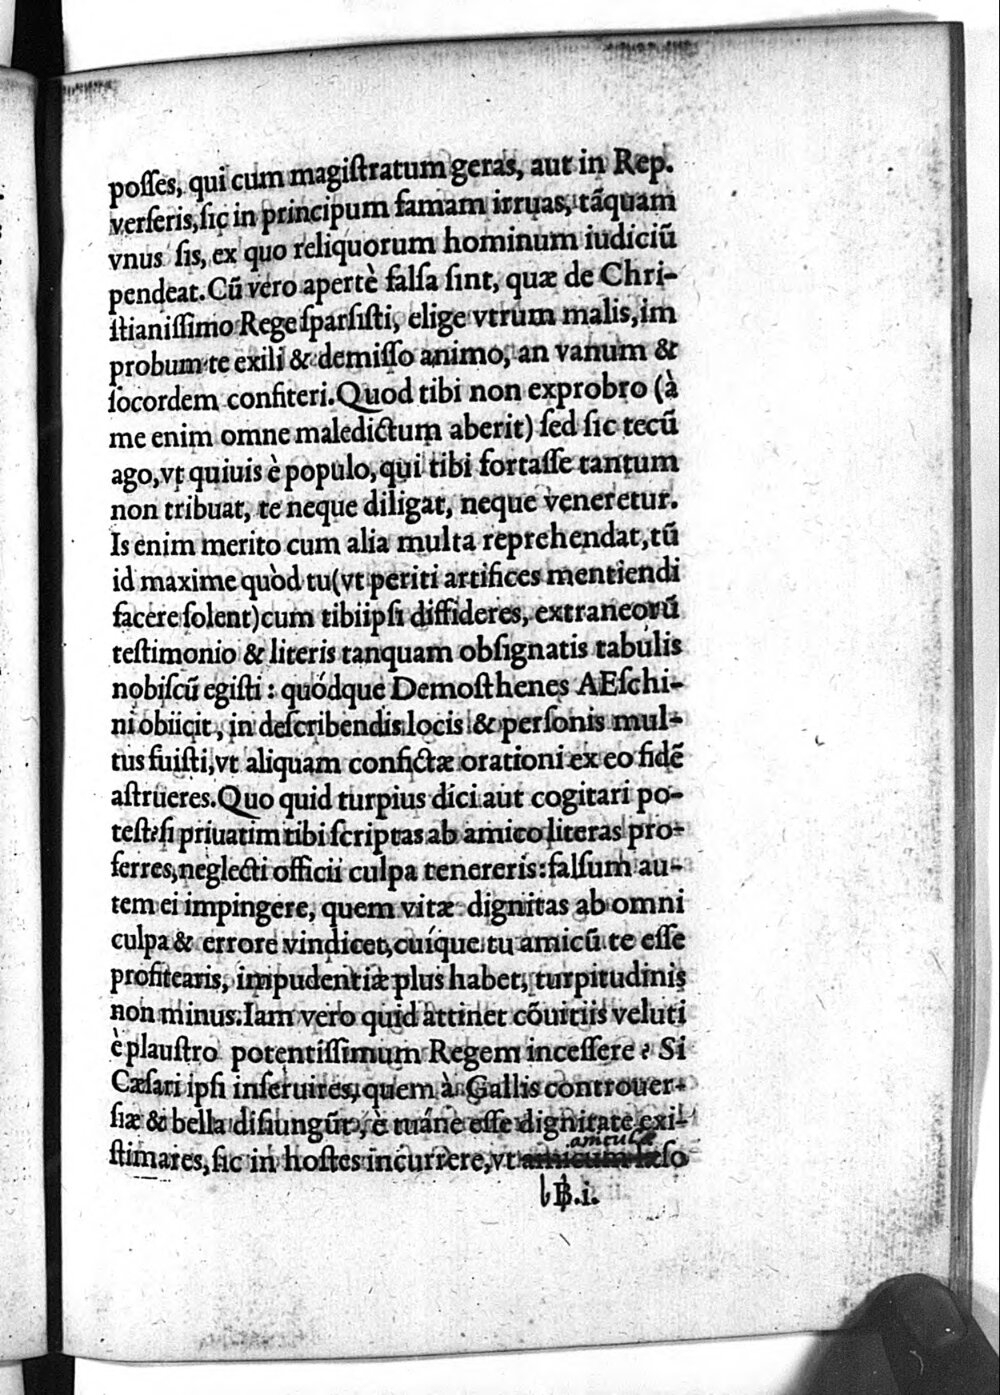 poſſes, qui cum magiſtratum geras, aut in Rep.
verſeris, ſic in principum famam irruas, tãquam
vnus ſis, ex quo reliquorum hominum iudiciũ
pendeat. Cũ vero apertè falſa ſint, quæ de Chri-
ſtianiſſimo Rege ſparſiſti, elige vtrum malis, im
probum te exili & demiſſo animo, an vanum &
ſocordem confiteri. Quod tibi non exprobro (à
me enim omne maledictum aberit) ſed ſic tecũ
ago, vt quiuis è populo, qui tibi fortaſſe tantum
non tribuat, te neque diligat, neque veneretur.
Is enim merito cum alia multa reprehendat, tũ
id maxime quòd tu (vt periti artifices mentiendi
facere ſolent) cum tibiipſi diffideres, extraneorũ
teſtimonio & literis tanquam obſignatis tabulis
nobiſcũ egiſti: quódque Demoſthenes AEſchi-
ni obiicit, in deſcribendis locis & perſonis mul-
tus fuiſti, vt aliquam confictæ orationi ex eo fidẽ
aſtrueres. Quo quid turpius dici aut cogitari po-
teſt? ſi priuatim tibi ſcriptas ab amico literas pro-
ferres, neglecti officii culpa tenereris: falſum au-
tem ei impingere, quem vitæ dignitas ab omni
culpa & errore vindicet, cuíque tu amicũ te eſſe
profitearis, impudentiæ plus habet, turpitudinis
non minus. Iam vero quid attinet cõuitiis veluti
è plauſtro potentiſſimum Regem inceſſere? Si
Cæſari ipſi inſeruires, quem à Gallis controuer-
ſiæ & bella diſiungũt, è tuáne eſſe dignitate exi-
ſtimares, ſic in hoſtes incurrere, vt amicum ſæſo
B.i.